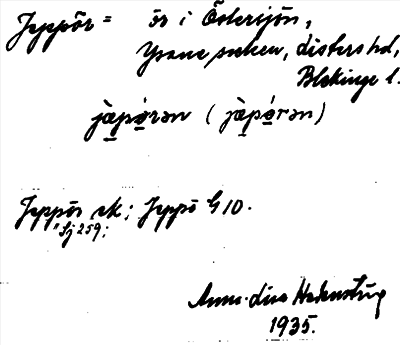 Jeppör = ör i Östersjön,
Ysane socken, Listers hd,
Blekinge l.
jàpǿrən (jàpǿrən)
Jeppör ek; Jeppö G 10.
Sj 259;
Anna-Lisa
1935.